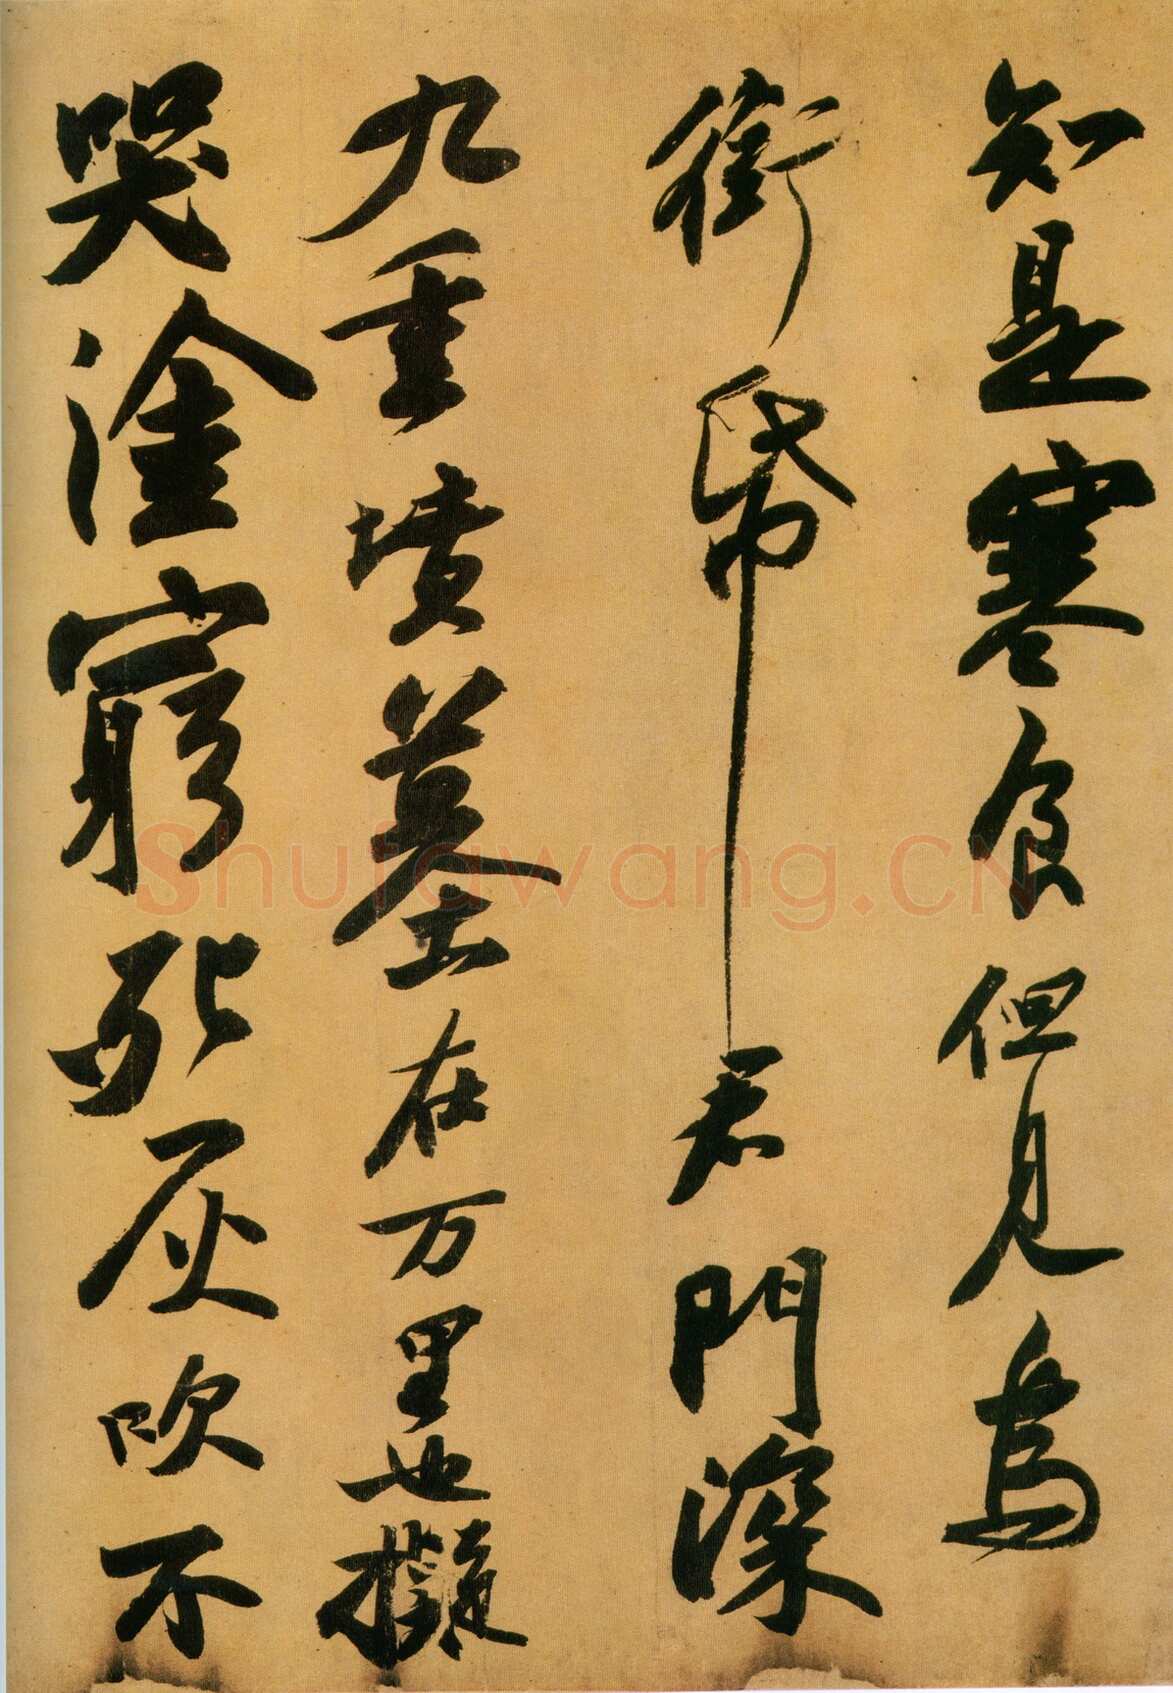 知是寒食但見烏
銜帋君門深
九重墳墓在万里也擬
哭塗窮死灰吹不
Shufawang.CN